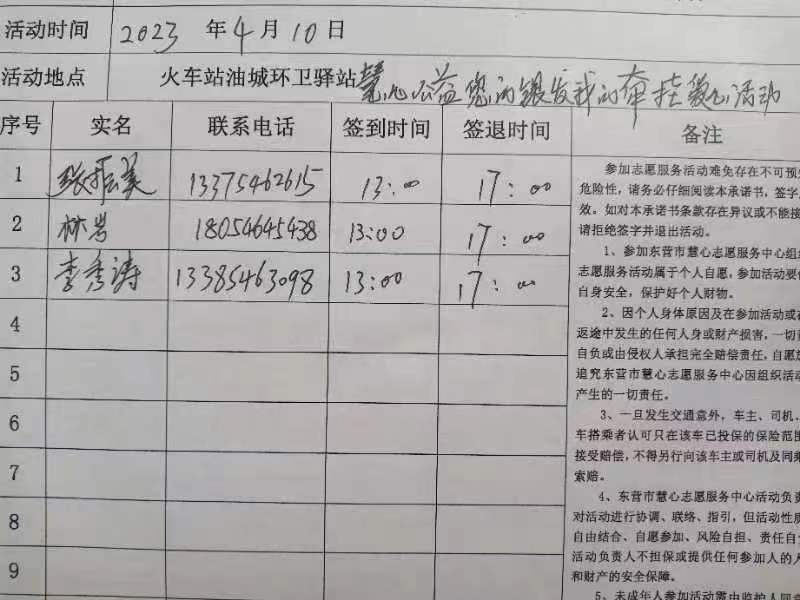 活动时间 2023 年 4 月 10 日
活动地点 火车站油城环卫驿站慧心公益您的银发我的牵挂爱心活动
序号 实名 联系电话 签到时间 签退时间 备注
1 张振美 13375462615 13:00 17:00
2 林岩 18054645438 13:00 17:00
3 李秀涛 13385463098 13:00 17:00
4
5
6
7
8
9
参加志愿服务活动难免存在不可预
危险性，请务必仔细阅读本承诺书，签字
效。如对本承诺书条款存在异议或不能接
请拒绝签字并退出活动。
1、参加东营市慧心志愿服务中心组
志愿服务活动属于个人自愿，参加活动要
自身安全，保护好个人财物。
2、因个人身体原因及在参加活动或
返途中发生的任何人身或财产损害，一切
自负或由侵权人承担完全赔偿责任，自愿
追究东营市慧心志愿服务中心因组织活动
产生的一切责任。
3、一旦发生交通意外，车主、司机、
车搭乘者认可只在该车已投保的保险范围
接受赔偿，不得另行向该车主或司机及同乘
索赔。
4、东营市慧心志愿服务中心活动负责
对活动进行协调、联络、指引，但活动性质
自由结合、自愿参加、风险自担、责任自
活动负责人不担保或提供任何参加人的人
和财产的安全保障。
5、未成年人参加活动需由监护人同意